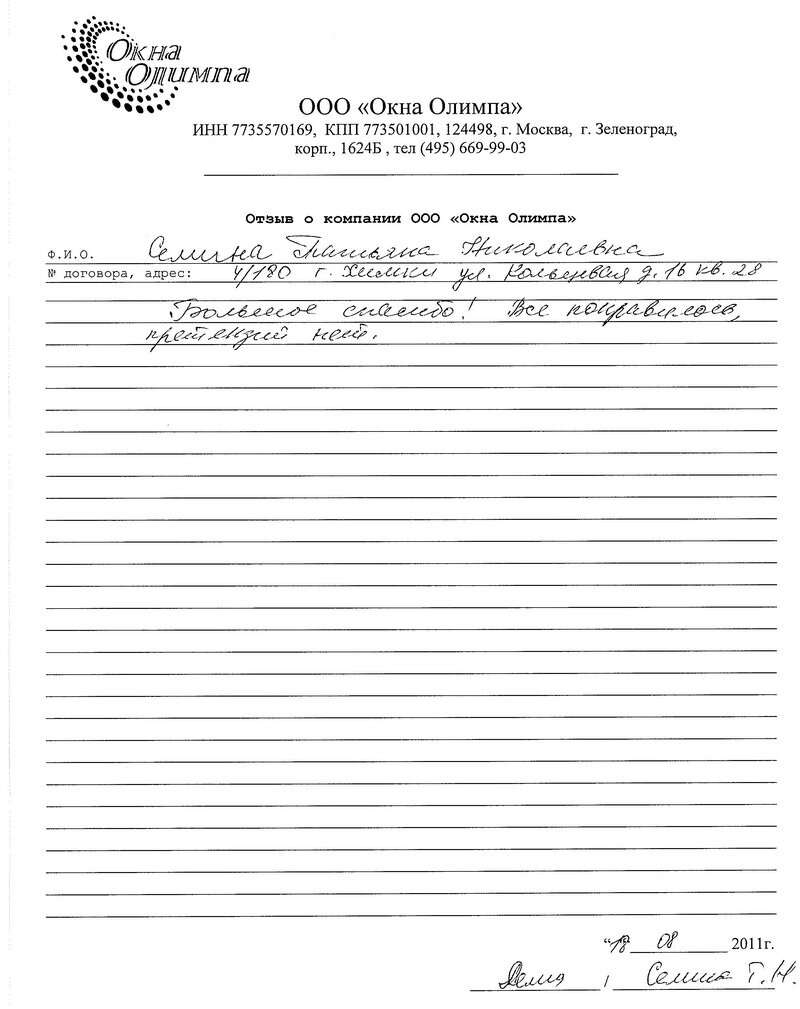 Окна
Олимпа
ООО «Окна Олимпа»
ИНН 7735570169, КПП 773501001, 124498, г. Москва, г. Зеленоград,
корп., 1624Б , тел (495) 669-99-03
Отзыв о компании ООО «Окна Олимпа»
Ф.И.О. Семина Татьяна Николаевна
№ договора, адрес: 4/180 г. Химки ул. д. 16 кв. 28
Большое спасибо! Все понравилось,
претензий нет.
"18 08 2011г.
/ Семина Т.Н.